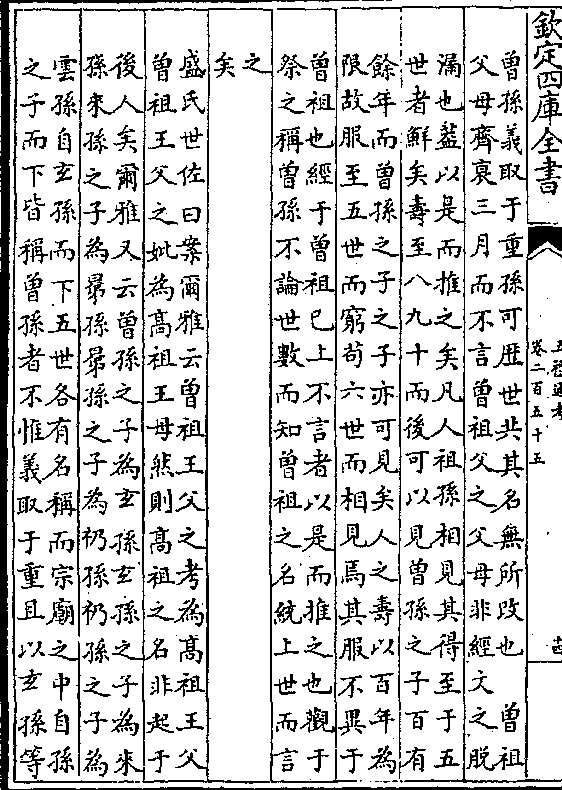 欽定四庫全書
五禮通考
卷二百五十五
十四
曾孫義取于重孫可歷世共其名無所改也　曾祖
父母齊衰三月而不言曾祖父之父母非經文之脫
漏也蓋以是而推之矣凡人祖孫相見其得至于五
世者鮮矣壽至八九十而後可以見曾孫之子百有
餘年而曾孫之子之子亦可見矣人之壽以百年為
限故服至五世而窮苟六世而相見焉其服不異于
曾祖也經于曾祖已上不言者以是而推之也觀于
祭之稱曾孫不論世數而知曾祖之名統上世而言
之
矣
盛氏世佐曰案爾雅云曾祖王父之考為髙祖王父
曾祖王父之妣為髙祖王母然則髙祖之名非起于
後人矣爾雅又云曾孫之子為玄孫玄孫之子為來
孫來孫之子為晜孫晜孫之子為礽孫礽孫之子為
雲孫自玄孫而下五世各有名稱而宗廟之中自孫
之子而下皆稱曾孫者不惟義取于重且以玄孫等